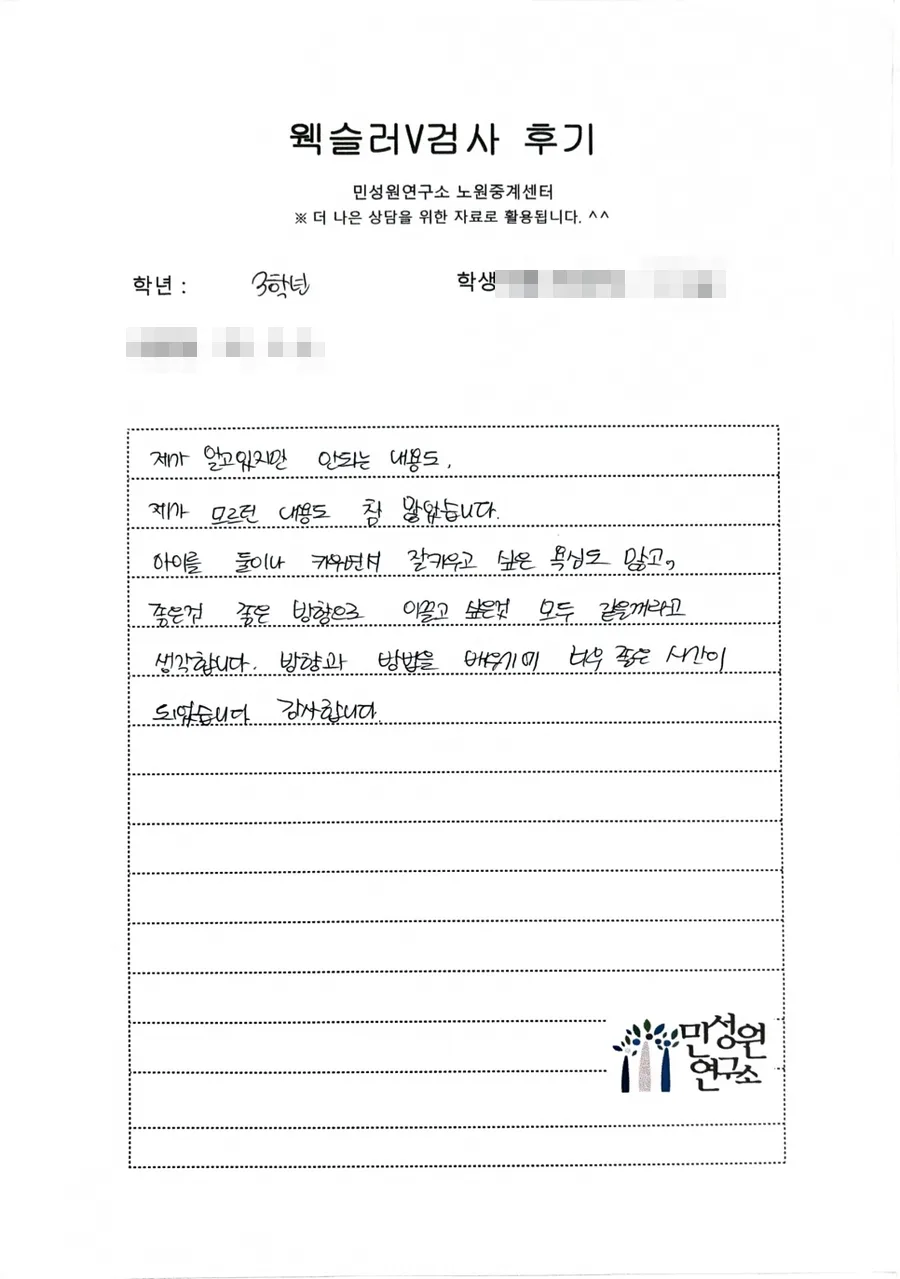 웩슬러V검사 후기
민성원연구소 노원중계센터
※ 더 나은 상담을 위한 자료로 활용됩니다. ^^
학년 : 3학년 학생
제가 알고있지만 안되는 내용도,
제가 모르던 내용도 참 많았습니다.
아이를 둘이나 키우면서 잘키우고 싶은 욕심도 많고,
좋은것 좋은 방향으로 이끌고 싶은것 모두 같을꺼라고
생각합니다. 방향과 방법을 배우기에 너무 좋은 시간이
되었습니다 감사합니다.
민성원
연구소